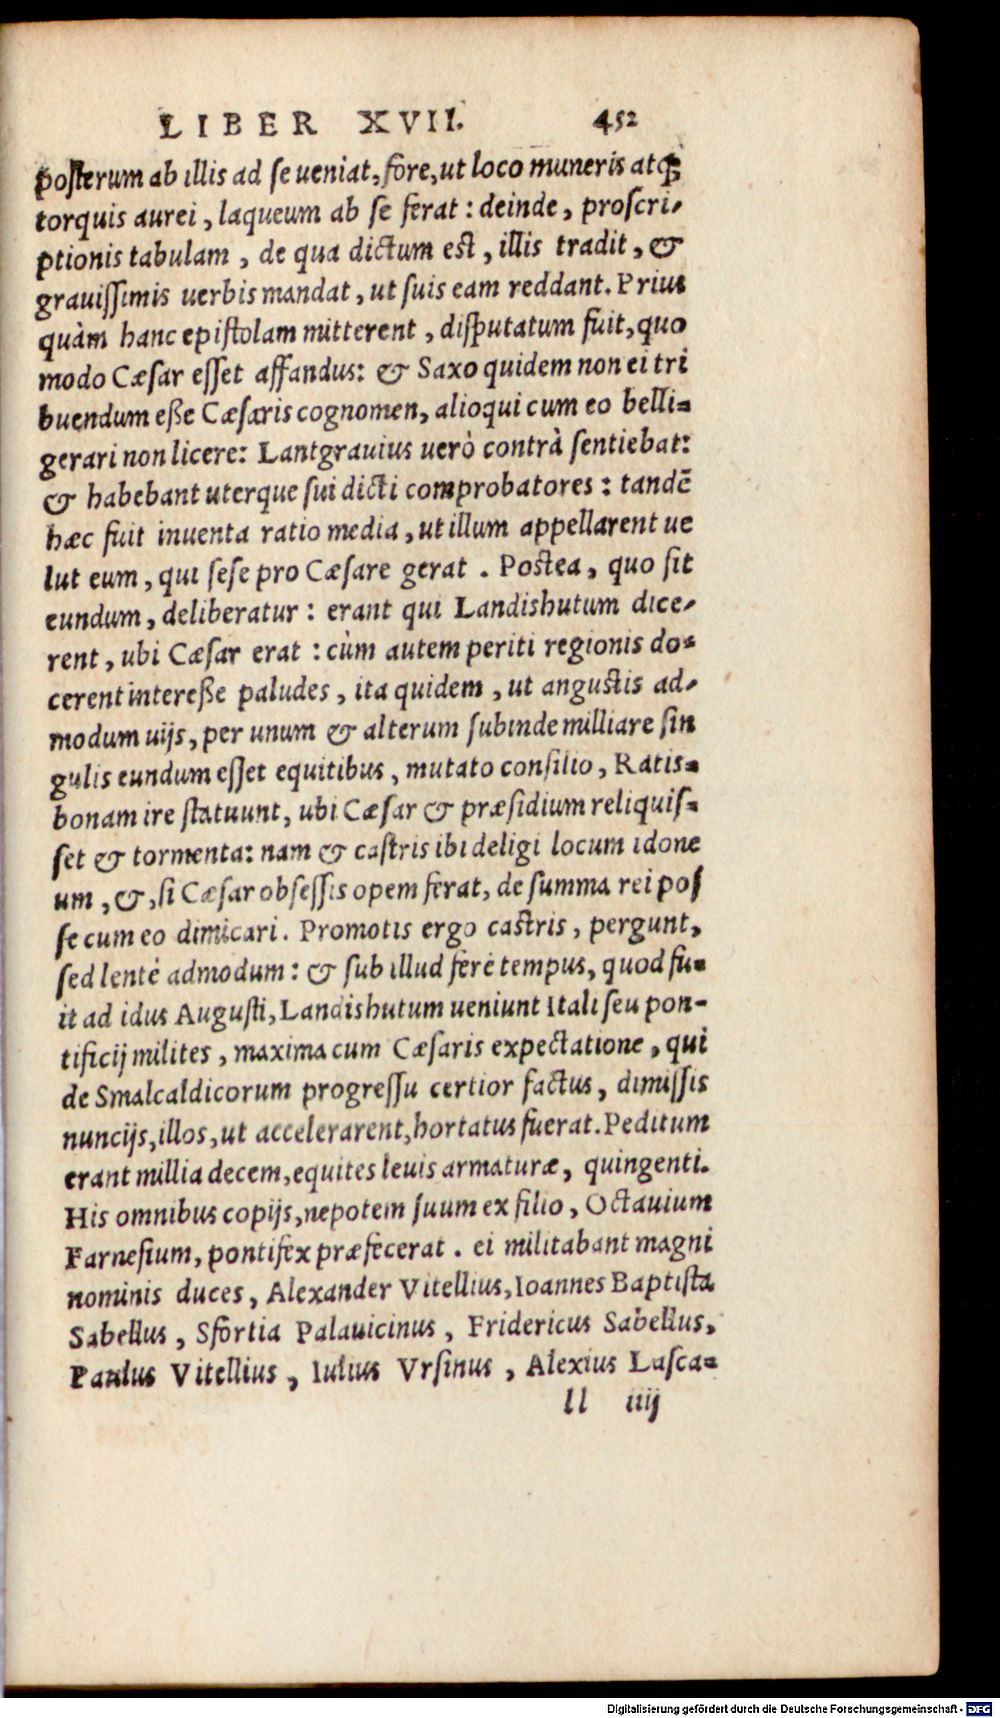 LIBER XVII. 452
posterum ab illis ad se ueniat, fore, ut loco muneris atq́;
torquis aurei, laqueum ab se ferat: deinde, proscri-
ptionis tabulam, de qua dictum est, illis tradit, &
grauissimis uerbis mandat, ut suis eam reddant. Prius
quàm hanc epistolam mitterent, disputatum fuit, quo
modo Cæsar esset affandus: & Saxo quidem non ei tri
buendum eße Cæsaris cognomen, alioqui cum eo belli-
gerari non licere: Lantgrauius uerò contrà sentiebat:
& habebant uterque sui dicti comprobatores: tandē
hæc fuit inuenta ratio media, ut illum appellarent ue
lut eum, qui sese pro Cæsare gerat. Postea, quo sit
eundum, deliberatur: erant qui Landishutum dice-
rent, ubi Cæsar erat: cùm autem periti regionis do-
cerent intereße paludes, ita quidem, ut angustis ad-
modum uijs, per unum & alterum subinde milliare sin
gulis eundum esset equitibus, mutato consilio, Ratis-
bonam ire statuunt, ubi Cæsar & præsidium reliquis-
set & tormenta: nam & castris ibi deligi locum idone
um, &, si Cæsar obsessis opem ferat, de summa rei pos
se cum eo dimicari. Promotis ergo castris, pergunt,
sed lentè admodum: & sub illud ferè tempus, quod fu-
it ad idus Augusti, Landishutum ueniunt Itali seu pon-
tificij milites, maxima cum Cæsaris expectatione, qui
de Smalcaldicorum progressu certior factus, dimissis
nuncijs, illos, ut accelerarent, hortatus fuerat. Peditum
erant millia decem, equites leuis armaturæ, quingenti.
His omnibus copijs, nepotem suum ex filio, Octauium
Farnesium, pontifex præfecerat. ei militabant magni
nominis duces, Alexander Vitellius, Ioannes Baptista
Sabellus, Sfortia Palauicinus, Fridericus Sabellus,
Paulus Vitellius, Iulius Vrsinus, Alexius Lasca-
ll iiij
Digitalisierung gefördert durch die Deutsche Forschungsgemeinschaft - DFG